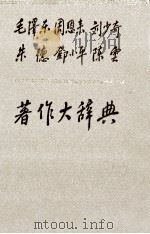 毛泽东周恩来刘少奇
朱德邓小平陈云
著作大辞典